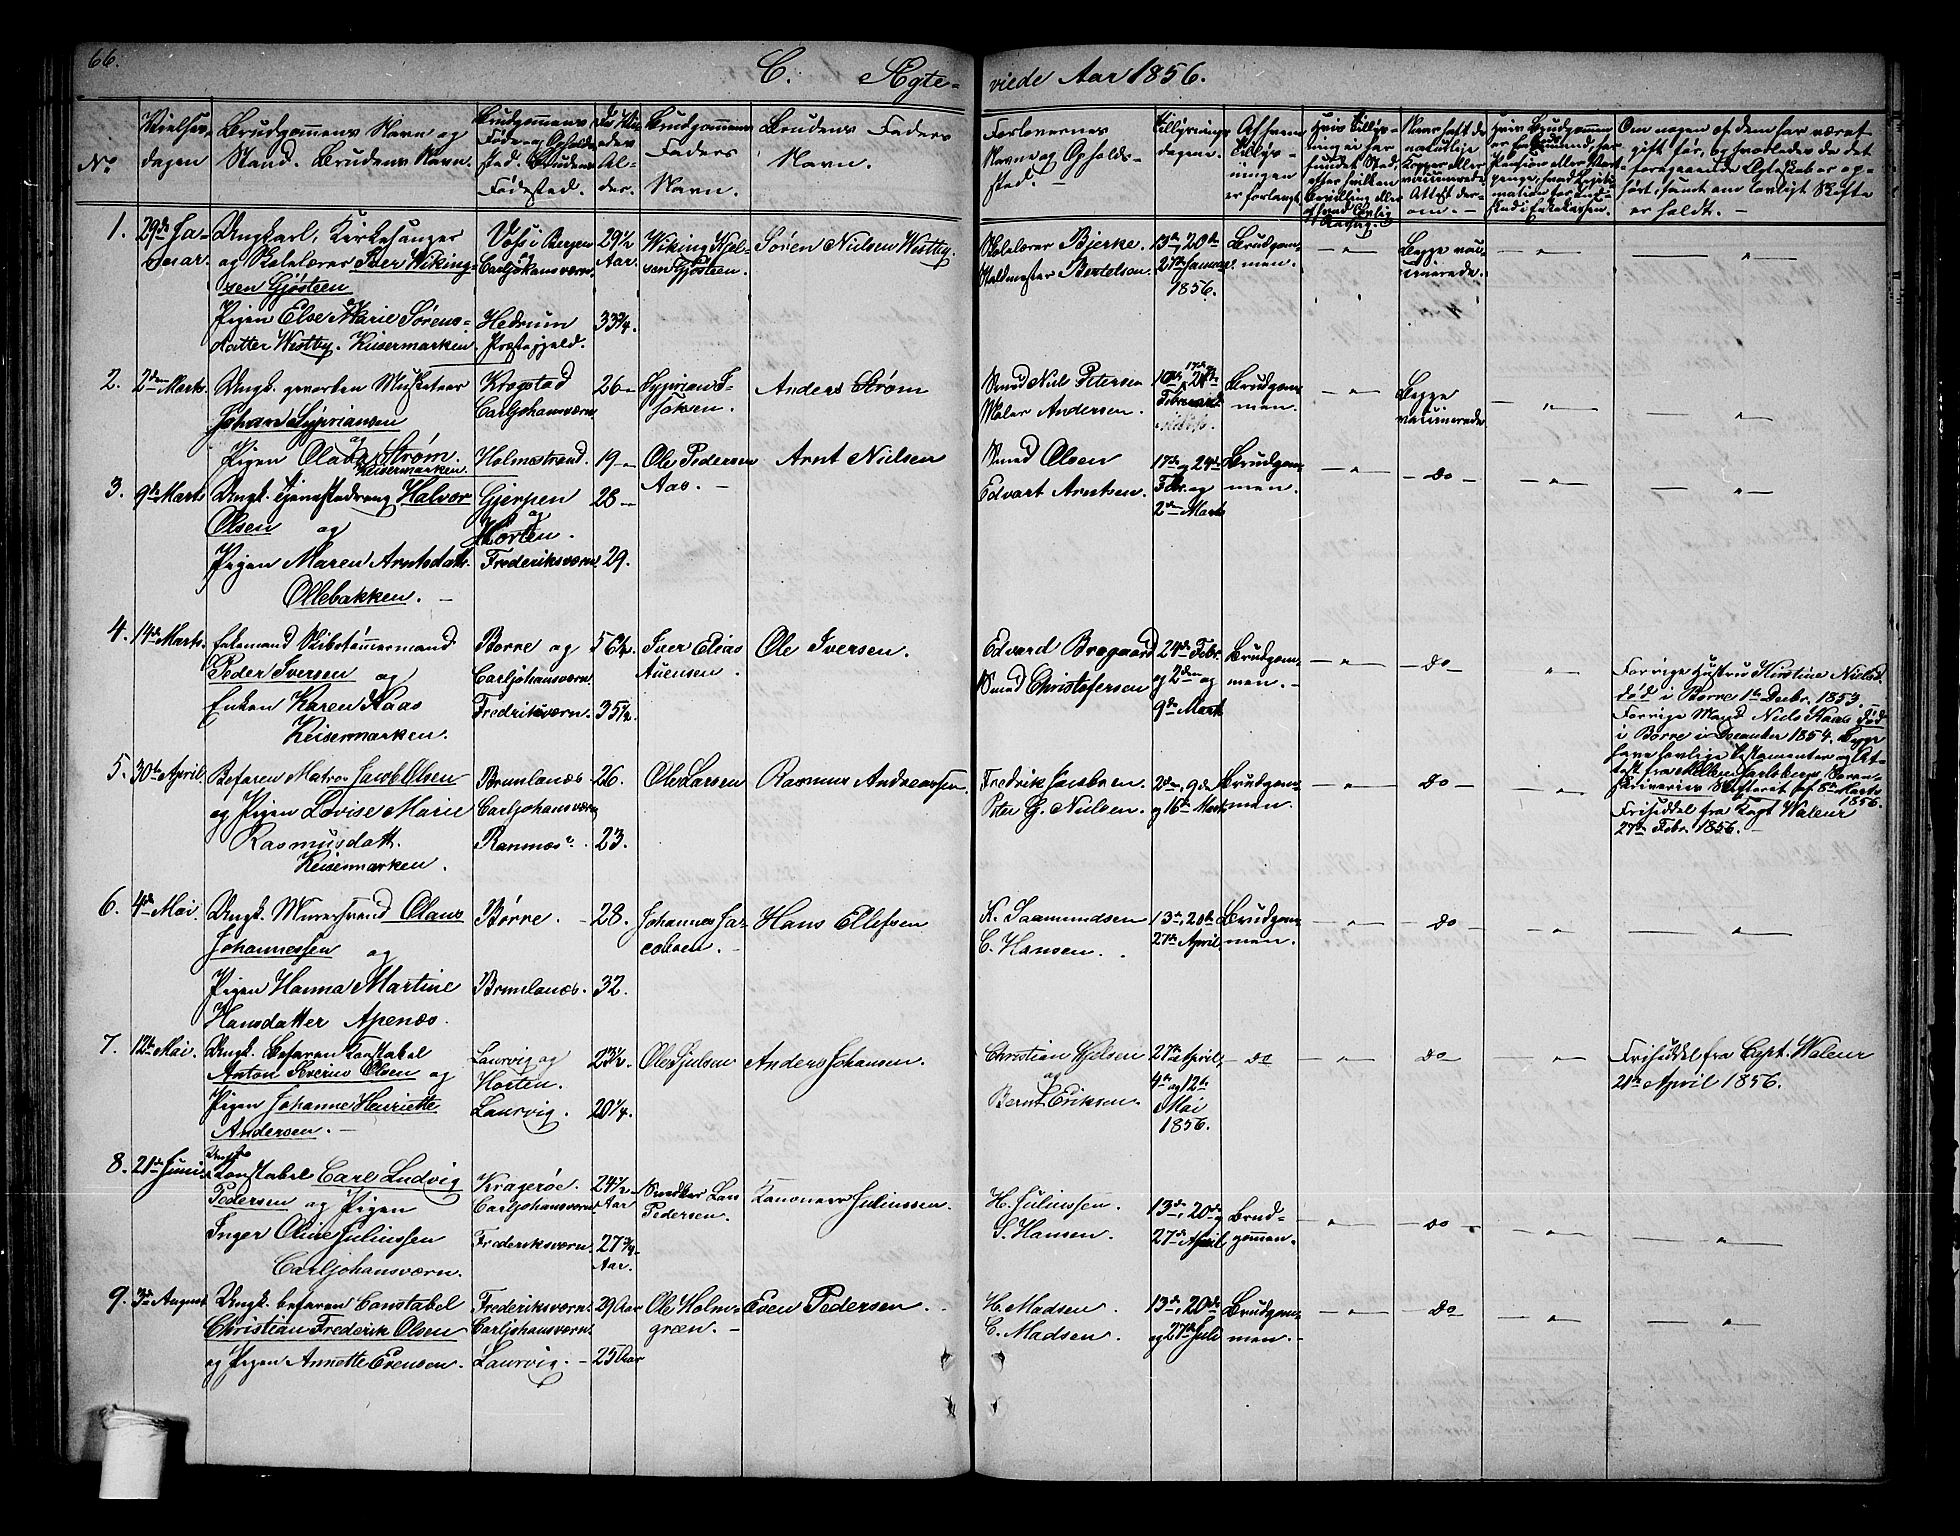 66.
C. Ægte-
viede Aar 1856.
No
Vielses-
dagen
Brudgommens Navn og
Stand. Brudens Navn.
Brudgommens
Føde- og Opholds-
sted. Brudens
Fødested.
Al-
der.
Brudgommens
Faders
Navn.
Brudens Faders
Navn.
Forlovernes
Navne og Opholds-
sted.
Tillysnings-
dagene.
Af hvem
Tillys-
ningen
er forlangt
Om nogen af dem har været
gift før, og hvorledes da det
foregaaende Ægteskab er op-
hørt, samt om lovligt Skifte
er holdt.
1.
29de Ja-
nuar.
Ungkarl, Kirkesanger
og Skolelærer Iver Wiking-
sen Gjösteen
Pigen Else Marie Sørens-
datter Westby. Keisermarken
Voss i Bergen
Carljohansværn
Hedrum
Præstegjeld.
29 1/2
Aar.
33 3/4.
Wiking Niel-
sen Gjösteen.
Sören Nielsen Westby.
Skolelærer Bjerke.
Staldmester Bertelsen.
13de, 20de
27de Januar
1856.
Brudgom-
men.
Begge vac-
cinerede.
2.
2den Marts
Ungk. geworben Musketeer
Johan Syprianssen
og
Pigen Olava Strøm.
Keisermarken.
Krogstad
Carljohansværn
Holmestrand.
26
19
Syprian I-
saksen.
Anders Strøm
Smed Niel Petersen
Maler Andersen.
10de, 17de, 24de
Februar
Brudgom-
men.
Begge
vaccinerede
3.
9de Marts
Ungk. Tjenestedreng Halvor
Olsen og
Pigen Maren Arntsdatt.
Ollebakken.
Gjerpen
og
Horten.
Frederiksværn
28
29.
Ole Pedersen
Aas.
Arnt Nielsen
Smed Olsen
Edvart Arntsen.
17de og 24de
Febr. og
2den Marts
Brudgom-
men.
do
4.
14de Marts.
Enkemand Skibstømmermand
Peder Iversen og
Enken Karen Kaas
Keisermarken.
Borre og
Carljohansværn.
Fredriksværn.
56 1/2.
35 1/2.
Iver Elias
Auensen.
Ole Iversen.
Edvard Bragaard
Smed Christofersen
24de Febr.
og 2den og
9de Marts
Brudgom-
men.
do
Forrige Hustru Kirstine Nielsd.
død i Borre 1ste Decbr. 1853.
Forrige Mand Niels Kaas død
i Borre i December 1854. Begge
have havlige Testamenter og At-
test fra Mellem Jarlsbergs Soren-
skriveries Skifteret af 8de Marts
1856.
5.
30te April.
Befaren Matros Jacob Olsen
og Pigen Lovise Marie
Rasmusdatt.
Keisermarken.
Brunlanæs
Carljohansværn
Ramnæs
26.
23.
Ole Larsen
Rasmus Andreassen.
Fredrik Jacobsen.
Peter G. Nielsen.
2den, 9de
og 16de Marts
Brudgom-
men.
do
Friseddel fra Capt Waleur
27de Febr. 1856.
6.
4de Mai.
Ungk. Murersvend Olaus
Johannessen
og
Pigen Hanna Martine
Hansdatter Apenæs.
Borre.
Brunlanæs.
28.
32.
Johannes Ja-
cobsen.
Hans Ellefsen
K. Saamundsen
C. Hansen.
13de, 20de
27de April.
Brudgom-
men.
do
7.
12te Mai.
Ungk. Befaren Konstabel
Anton Severus Olsen og
Pigen Johanne Henriette
Andersen.
Laurvig og
Horten.
Laurvig.
23 1/2.
20 1/4.
Ole Julsen
Anders Johansen.
Christian Hjelsen
og
Bernt Eriksen.
27de April,
4de og 12te
Mai
1856.
do
do
Friseddel fra Capt. Waleur
21de April 1856.
8.
21de Juni.
Ungk.
Konstabel Carl Ludvig
Pedersen og Pigen
Inger Oline Juliussen
Carljohansværn.
Kragerøe.
Carljohansværn.
Frederiksværn.
24 1/2
Aar
27 3/4
Aar.
Snedker Lars
Pedersen.
Kanoneer Juliussen.
H. Juliussen.
S. Hansen.
13de, 20de og
27de April
Brud-
gommen.
do
9.
3de August
Ungk. befaren Constabel
Christian Frederik Olsen
og Pigen Annette Evensen.
Frederiksværn
Carljohansværn.
Laurvig.
29 Aar
25 Aar
Ole Holm-
green.
Even Pedersen.
H. Madsen.
C. Madsen.
13de, 20de
og 27de Juli
Brudgom-
men.
do